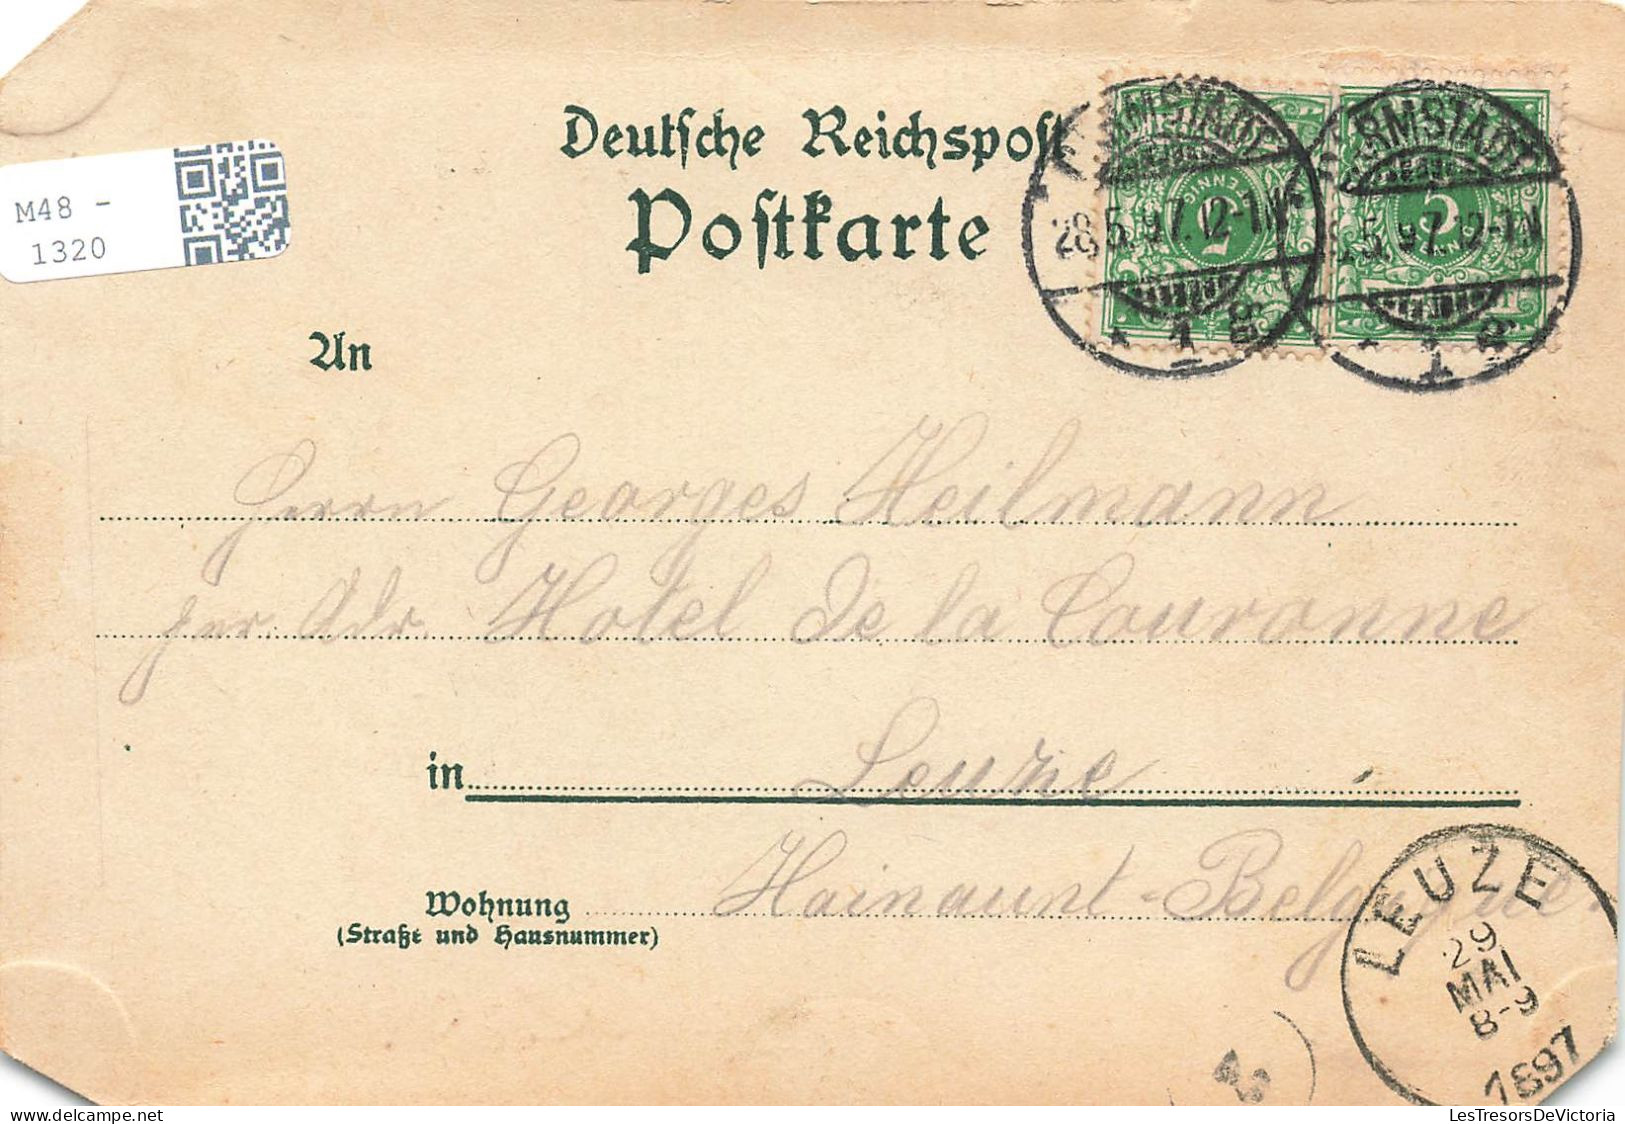 Deutsche Reichspost
Postkarte
M48 -
1320
28.5.97.12-1N
5.97.12-1N
1 a.
1 a.
PFENNIG
5
5
An
Herrn Georges Heilmann
per Adr. Hotel de la Couronne
in Leuze
Hainaunt-Belgique.
Wohnung
(Straße und Hausnummer)
LEUZE
29
MAI
8-9
1897
LesTresorsDeVictoria